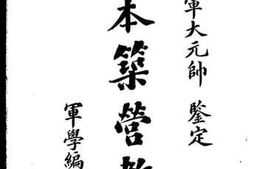 軍大元帥 鑒定
本築營教
軍學編